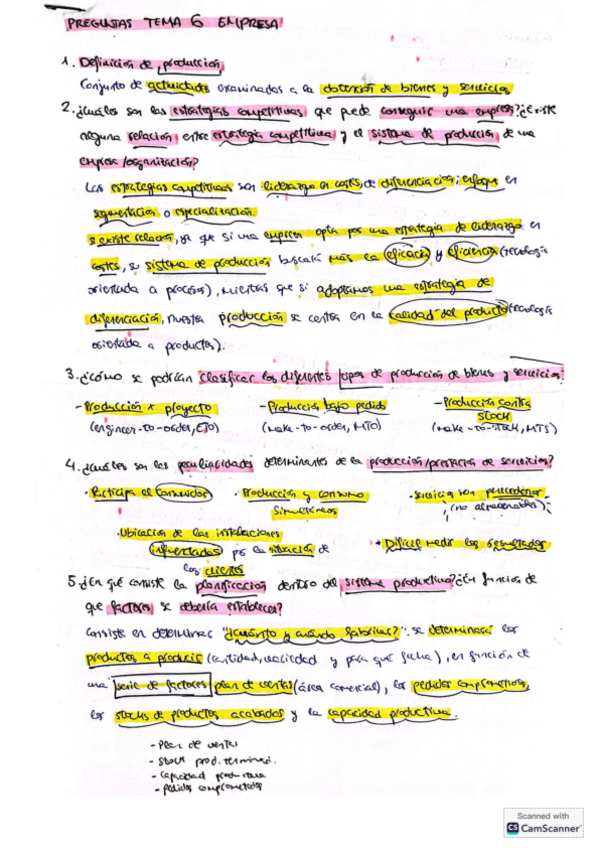 PREGUNTAS TEMA 6 EMPRESA
1. Definición de producción
Conjunto de actividades encaminadas a la obtención de bienes y servicios
2. ¿Cuáles son las estrategias competitivas que puede conseguir una empresa? ¿Existe
alguna relación entre estrategia competitiva y el sistema de producción de una
empresa/organización?
Las estrategias competitivas son liderazgo en costes, de diferenciación; enfoque en
segmentación o especialización.
si existe relación, ya que si una empresa opta por una estrategia de liderazgo en
costes, su sistema de producción buscará más la eficacia y eficiencia (tecnología
orientada a proceso), mientras que si adoptamos una estrategia de
diferenciación, nuestra producción se centra en la calidad del producto (tecnología
orientada a productos).
3. ¿Cómo se podrían clasificar los diferentes tipos de producción de bienes y servicios?
- Producción x proyecto - Producción bajo pedido - Producción contra
stock
(engineer-to-order, ETO) (make-to-order, MTO) (make-to-stock, MTS)
4. ¿Cuáles son las peculiaridades determinantes de la producción/prestación de servicios?
· Participa el consumidor · Producción y consumo · Servicios son perecederos
simultáneos (no almacenables)
· Ubicación de las instalaciones
influenciadas por la situación de · Difícil medir los resultados
los clientes
5. ¿En qué consiste la planificación dentro del sistema productivo? ¿En función de
que factores se debería establecer?
Consiste en determinar "¿cuánto y cuándo fabricar?". se determinará los
productos a producir (cantidad, variedad y para qué fecha), en función de
una serie de factores plan de ventas (área comercial), los pedidos comprometidos,
los stocks de productos acabados y la capacidad productiva.
- Plan de ventas
- Stock prod. terminad.
- capacidad productiva
- pedidos comprometidos
Scanned with
CS CamScanner